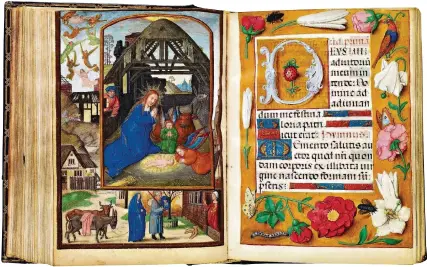 Ad prima
DEUS in
adiutoriū
meum in
tende: Do
mine ad
adiuuan
dum me festina
Gloria patri
sicut erat: Hymnus
Memento salutis au
ctor quod nr̄i quon
dam corporis ex illibata uir
gine nascendo formam sū
pseris